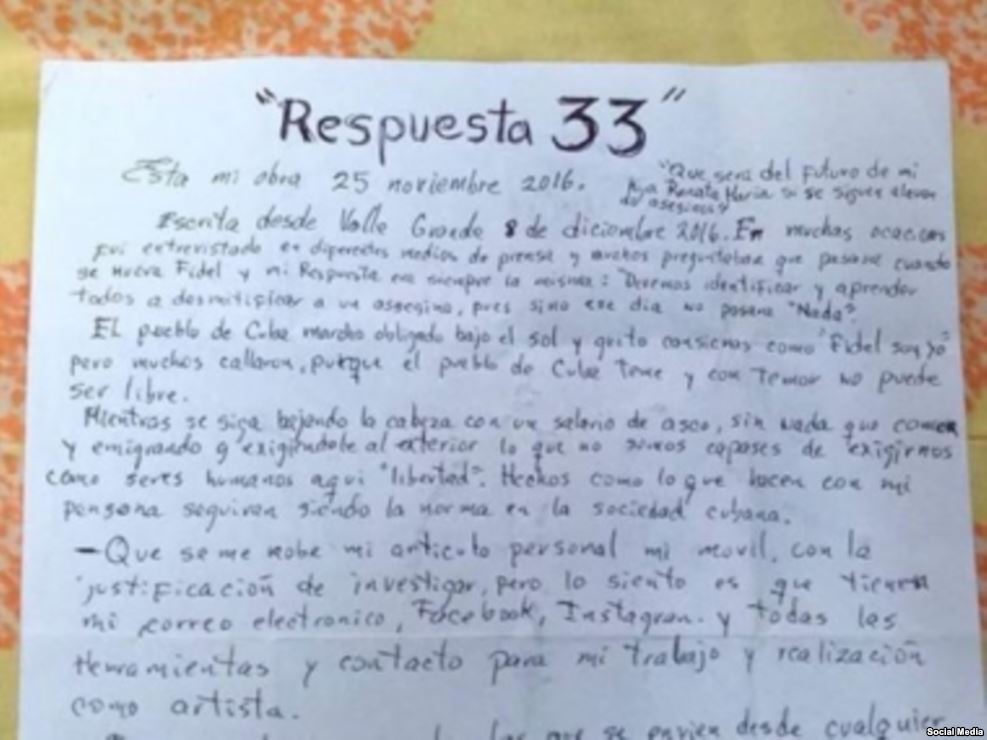 "Respuesta 33"
Esta mi obra 25 noviembre 2016.
"Que sera del Futuro de mi
hija Renata María si se siguen
asesinos?
Escrita desde Valle Grande 8 de diciembre 2016. En muchas ocaciones
fui entrevistado en diferentes medios de prensa y muchos preguntaban que pasaria cuando
se muera Fidel y mi Respuesta era siempre la misma: "Devemos identificar y aprender
todos a desmitificar a un assegino, pues sino ese dia no pasara "Nada".
El pueblo de Cuba marcho obligado bajo el sol y grito consignas como "Fidel soy yo"
pero muchos callaron, porque el pueblo de Cuba Teme y con Temor no puede
ser libre.
Mientras se siga bajando la cabeza con un salario de asco, sin nada que comer
y emigrando y exigiendole al exterior lo que no somos capases de exigirnos
como seres humanos aqui "libertad". Hechos como lo que hacen con mi
persona seguiran siendo la norma en la sociedad cubana.
- Que se me robe mi articulo personal mi movil, con la
justificación de investigar, pero lo siento es que tienen
mi correo electronico, Facebook, Instagran. y todas las
Herramientas y contacto para mi trabajo y realización
como artista.
que se envien desde cualquier
Social Media